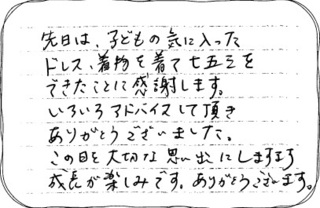 先日は、子どもの気に入った
ドレス、着物を着て七五三を
できたことに感謝します。
いろいろアドバイスして頂き
ありがとうございました。
この日を大切な思い出にしますます
成長が楽しみです。ありがとうございます。